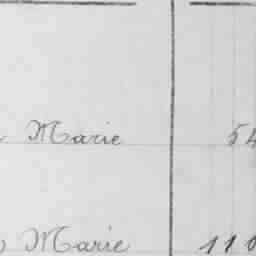 Marie 54
Marie 110